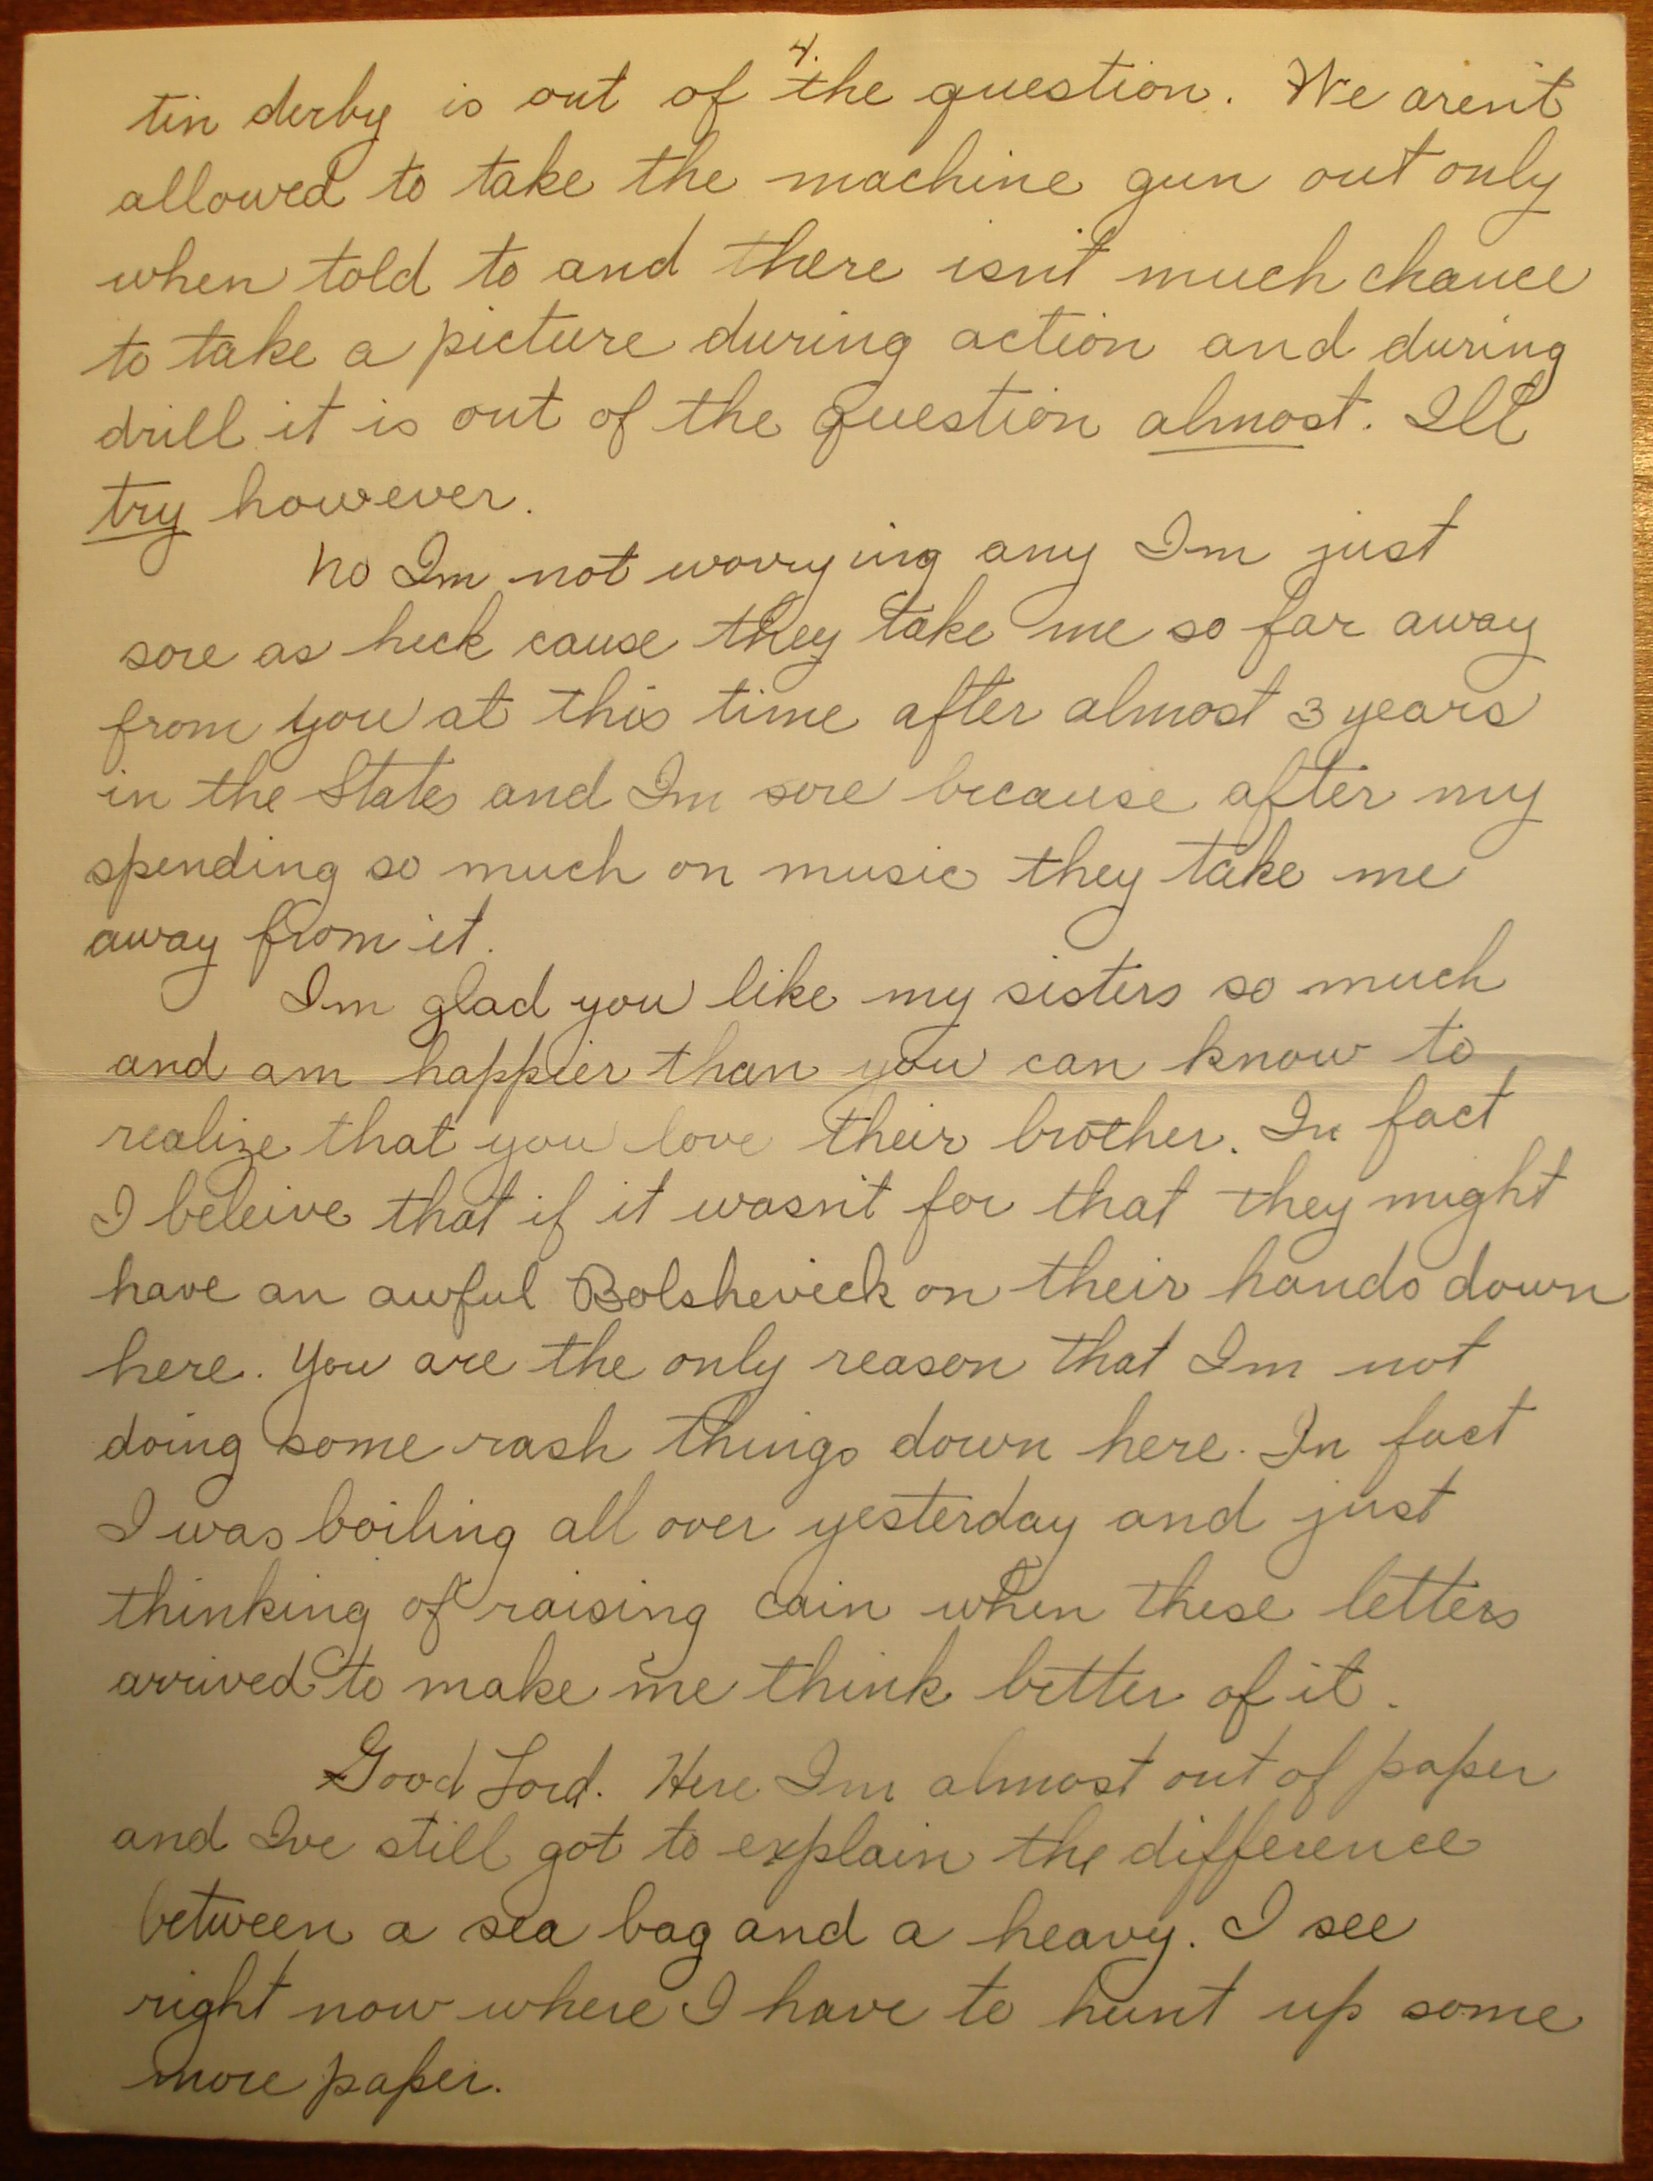 4.
tin derby is out of the question. We aren't
allowed to take the machine gun out only
when told to and there isn't much chance
to take a picture during action and during
drill it is out of the question almost. I'll
try however.
No Im not worrying any Im just
sore as heck cause they take me so far away
from you at this time after almost 3 years
in the States and Im sore because after my
spending so much on music they take me
away from it.
Im glad you like my sisters so much
and am happier than you can know to
realize that you love their brother. In fact
I beleive that if it wasn't for that they might
have an awful Bolshevick on their hands down
here. You are the only reason that Im not
doing some rash things down here. In fact
I was boiling all over yesterday and just
thinking of raising cain when these letters
arrived to make me think better of it.
Good Lord. Here Im almost out of paper
and Ive still got to explain the difference
between a sea bag and a heavy. I see
right now where I have to hunt up some
more paper.